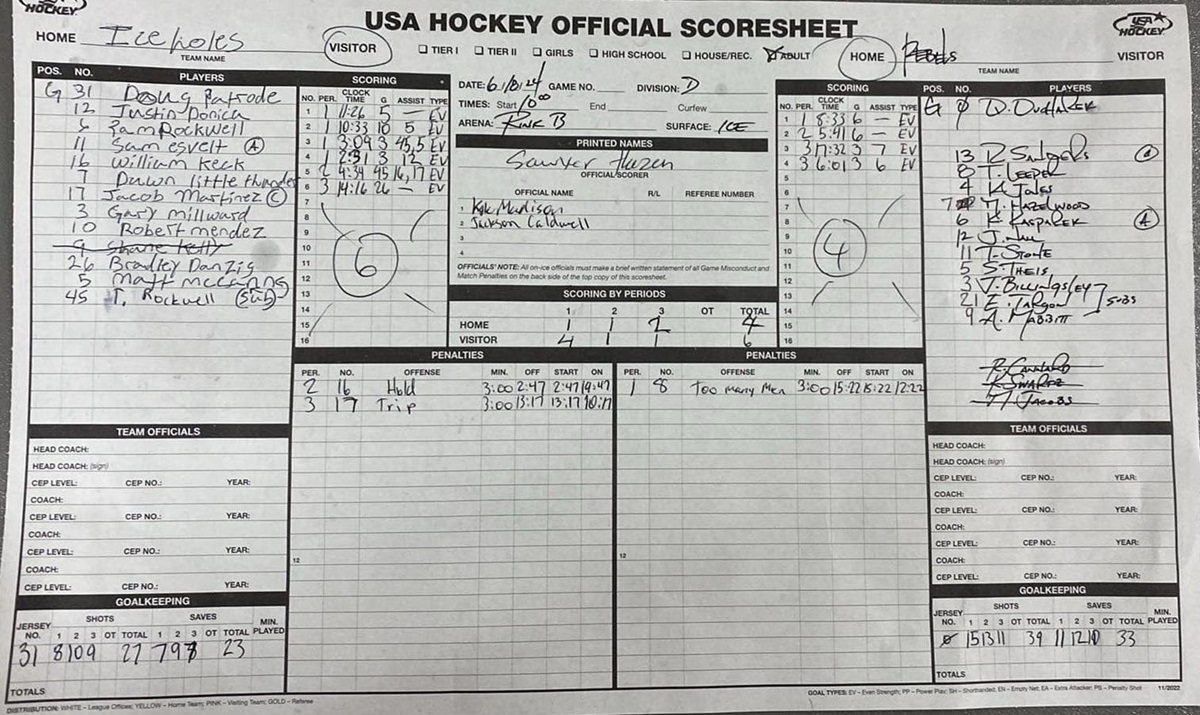 HOCKEY
USA HOCKEY OFFICIAL SCORESHEET
USA HOCKEY
HOME Iceholes VISITOR
TEAM NAME
☐ TIER I ☐ TIER II ☐ GIRLS ☐ HIGH SCHOOL ☐ HOUSE/REC. ☑ ADULT
HOME Rebels VISITOR
TEAM NAME
POS. NO. PLAYERS
G 31 Doug Patrode
12 Justin Donica
5 Pam Rockwell
11 Sam esvelt (A)
16 William Keck
7 Dawn little thunder
17 Jacob Martinez (C)
3 Gary millward
10 Robert mendez
9 Shane Kelly
26 Bradley Danzig
5 Matt mccanng
45 T. Rockwell (Sub)
SCORING
NO. PER. CLOCK TIME G ASSIST TYPE
1 1 11:26 5 — EV
2 1 10:33 10 5 EV
3 1 3:09 3 45,5 EV
4 1 2:31 3 12 EV
5 2 4:34 45 16,17 EV
6 3 14:16 26 — EV
7
8
9
10
11
12
13
14
15
16
6
DATE: 6/10/24 GAME NO. DIVISION: D
TIMES: Start 10:00 End Curfew
ARENA: Rink B SURFACE: ICE
PRINTED NAMES
Sawyer Hazen
OFFICIAL SCORER
OFFICIAL NAME R/L REFEREE NUMBER
1 Kyle Madison
2 Jackson Caldwell
3
4
OFFICIALS' NOTE: All on-ice officials must make a brief written statement of all Game Misconduct and
Match Penalties on the back side of the top copy of this scoresheet.
SCORING BY PERIODS
1 2 3 OT TOTAL
HOME 1 1 2 4
VISITOR 4 1 1 6
SCORING
NO. PER. CLOCK TIME G ASSIST TYPE
1 1 8:33 6 — EV
2 2 5:41 6 — EV
3 3 17:32 3 7 EV
4 3 6:01 3 6 EV
5
6
7
8
9
10
11
12
13
14
15
16
4
POS. NO. PLAYERS
G 0
13
8 T. Leeper
4 K. Jones
7 Hazelwood
6 K. Kasparek (A)
12
11 T. Stone
5 S. Theis
3 J. Billingsley
21 E. Targon
subs
9 A. Mabbitt
K. Swartz
Jacobs
PENALTIES
PER. NO. OFFENSE MIN. OFF START ON
2 16 Hold 3:00 2:47 2:47 19:47
3 17 Trip 3:00 13:17 13:17 10:17
12
PENALTIES
PER. NO. OFFENSE MIN. OFF START ON
1 8 Too Many Men 3:00 15:22 15:22 12:22
12
TEAM OFFICIALS
HEAD COACH:
HEAD COACH: (sign)
CEP LEVEL: CEP NO.: YEAR:
COACH:
CEP LEVEL: CEP NO.: YEAR:
COACH:
CEP LEVEL: CEP NO.: YEAR:
COACH:
CEP LEVEL: CEP NO.: YEAR:
GOALKEEPING
JERSEY NO. SHOTS 1 2 3 OT TOTAL SAVES 1 2 3 OT TOTAL MIN. PLAYED
31 8 10 9 27 7 9 7 23
TOTALS
TEAM OFFICIALS
HEAD COACH:
HEAD COACH: (sign)
CEP LEVEL: CEP NO.: YEAR:
COACH:
CEP LEVEL: CEP NO.: YEAR:
COACH:
CEP LEVEL: CEP NO.: YEAR:
COACH:
CEP LEVEL: CEP NO.: YEAR:
GOALKEEPING
JERSEY NO. SHOTS 1 2 3 OT TOTAL SAVES 1 2 3 OT TOTAL MIN. PLAYED
0 15 13 11 39 11 12 10 33
TOTALS
DISTRIBUTION: WHITE – League Offices; YELLOW – Home Team; PINK – Visiting Team; GOLD – Referee
GOAL TYPES: EV – Even Strength; PP – Power Play; SH – Shorthanded; EN – Empty Net; EA – Extra Attacker; PS – Penalty Shot 11/2022